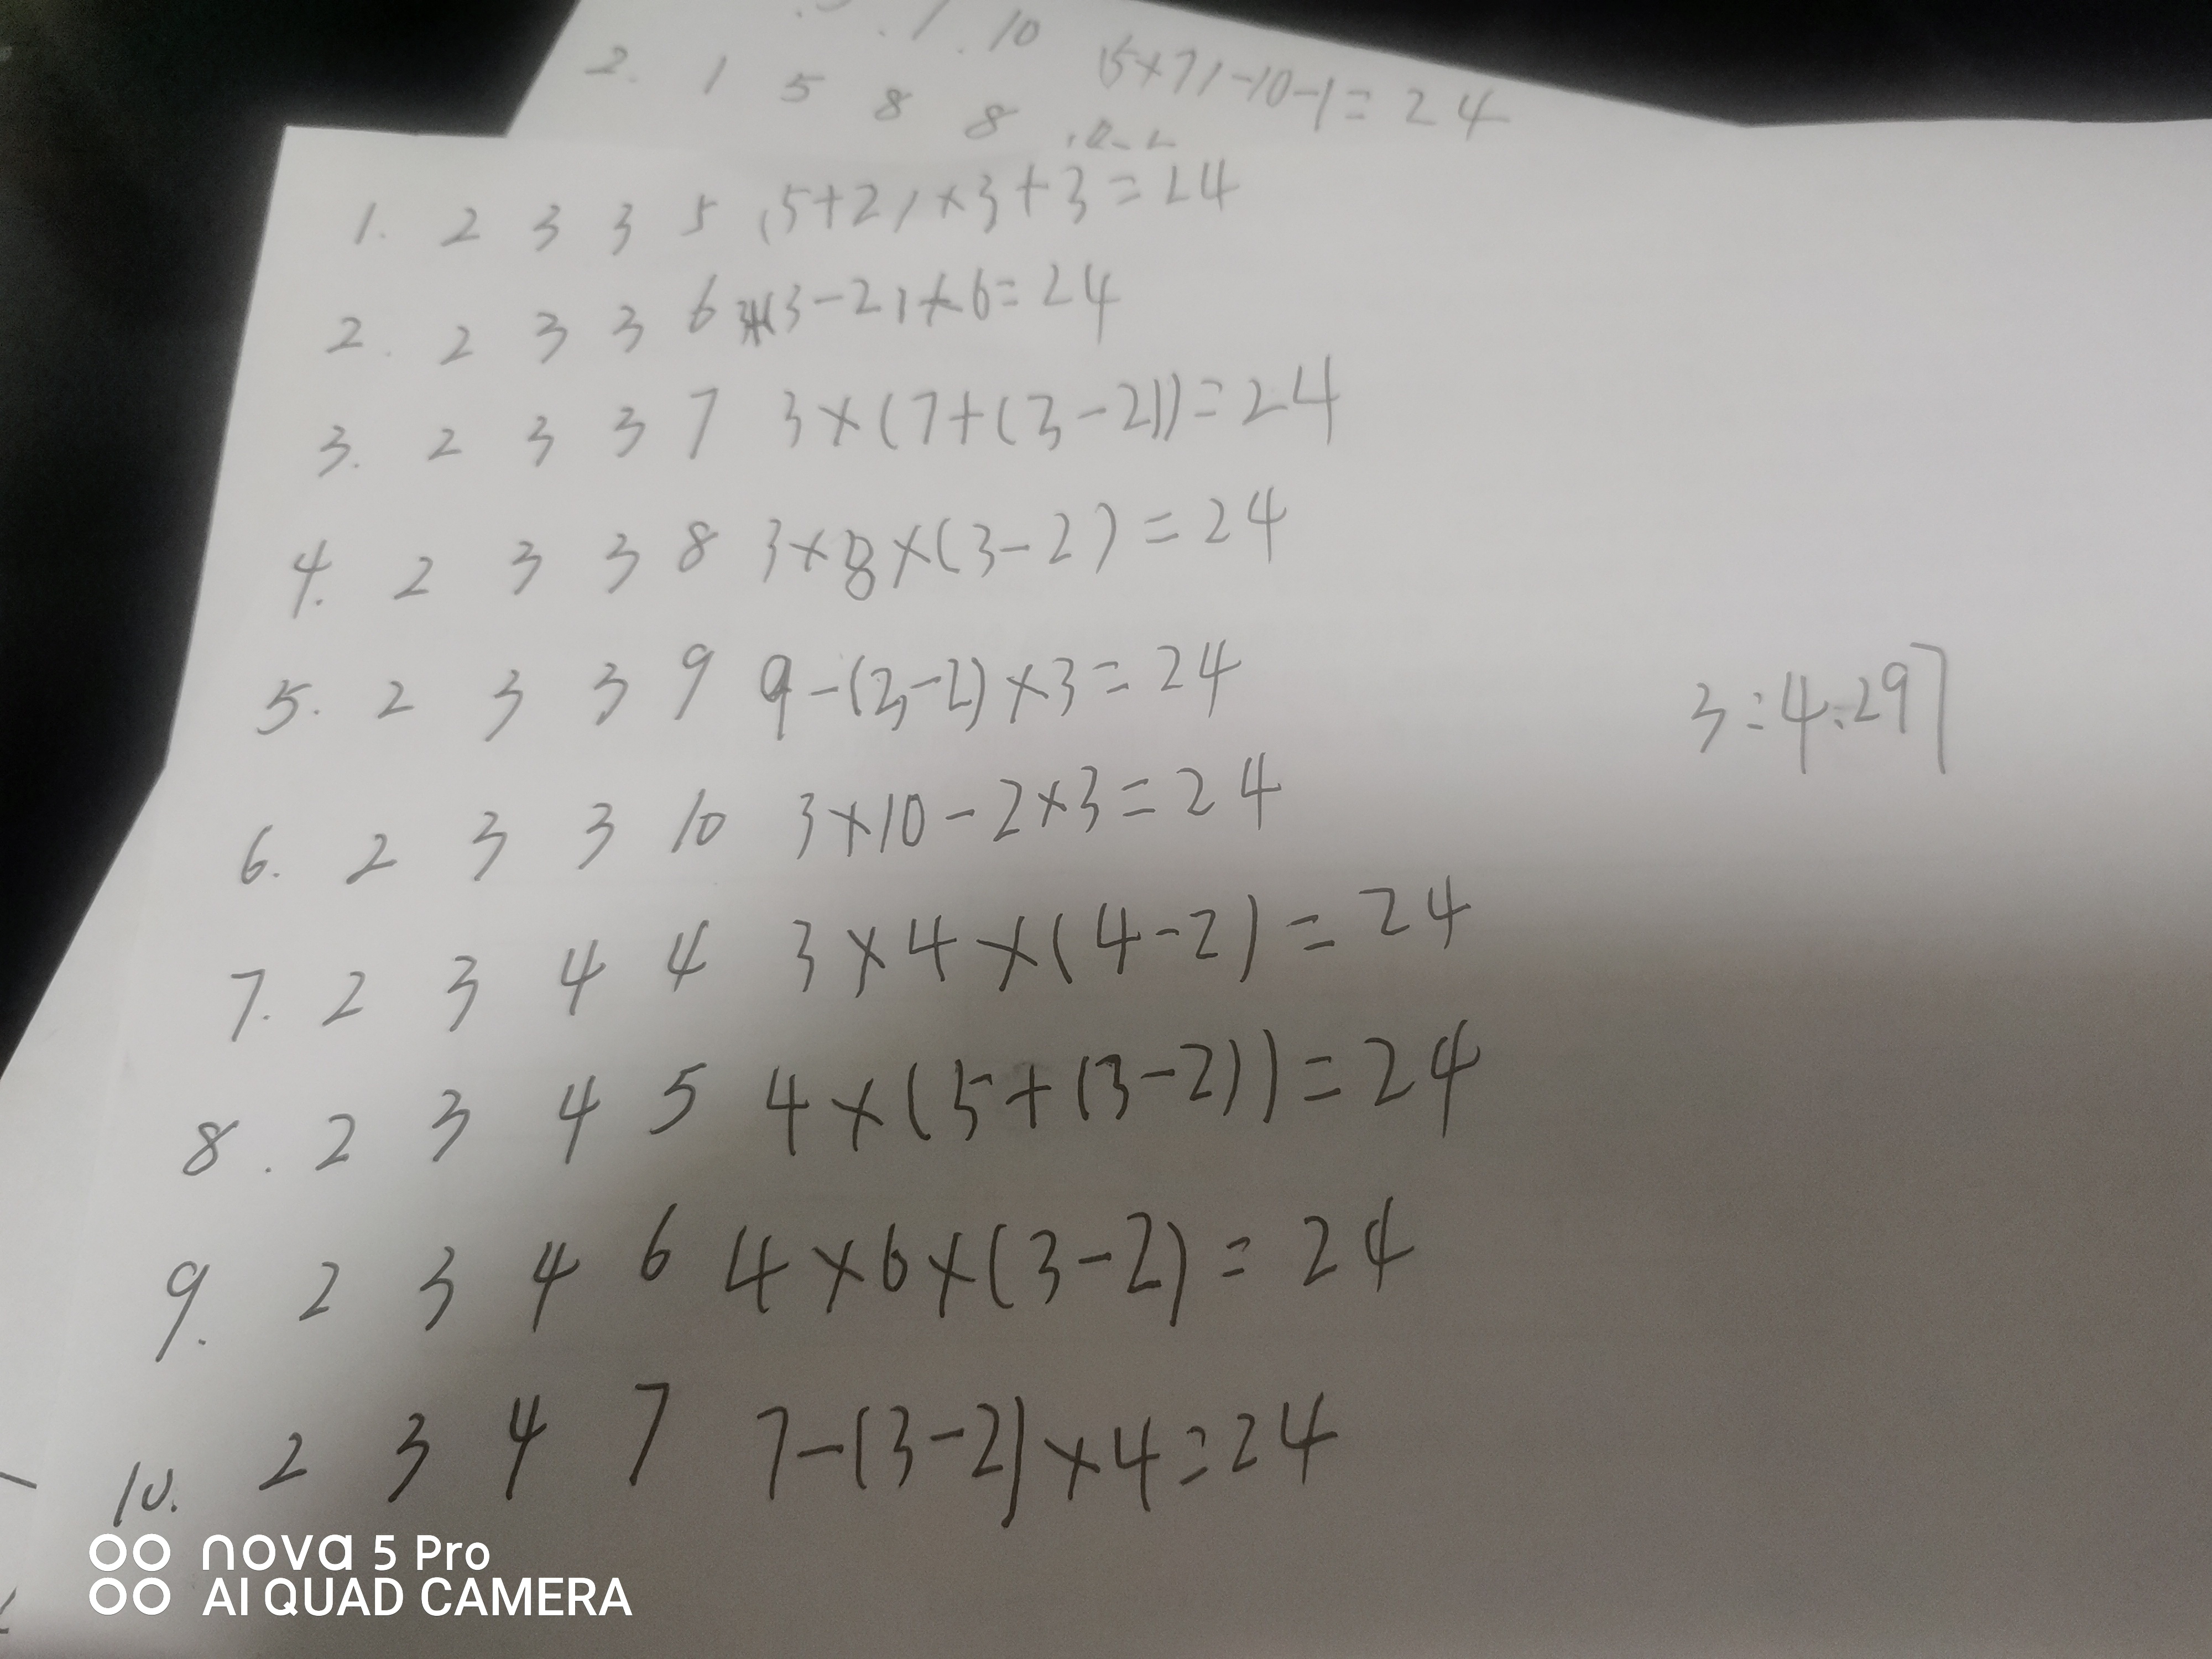 10 (5×7)-10-1=24
2. 1 5 8 8
1. 2 3 3 5 (5+2)×3+3=24
2. 2 3 3 6 (3-2)×6=24
3. 2 3 3 7 3×(7+(3-2))=24
4. 2 3 3 8 3×8×(3-2)=24
5. 2 3 3 9 9-(3-2)×3=24
3:4:29]
6. 2 3 3 10 3×10-2×3=24
7. 2 3 4 4 3×4×(4-2)=24
8. 2 3 4 5 4×(5+(3-2))=24
9. 2 3 4 6 4×6×(3-2)=24
10. 2 3 4 7 7-(3-2)×4=24
nova 5 Pro
AI QUAD CAMERA